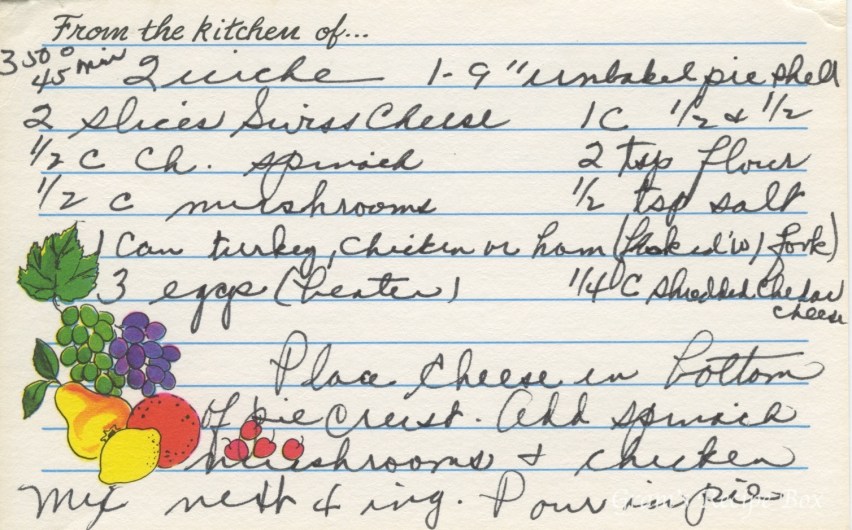 From the kitchen of...
350° 45 min Quiche 1-9" unbaked pie shell
2 slices Swiss Cheese 1C 1/2 & 1/2
1/2 C Ch. spinach 2 tsp flour
1/2 c mushrooms 1/2 tsp salt
1 Can turkey, chicken or ham (flaked w/ fork)
3 eggs (beaten) 1/4 C shredded Chedar cheese
Place cheese in bottom
of pie Crust. Add spinach
mushrooms & chicken
Mix next 4 ing. Pour in pie
Gram's Recipe Box